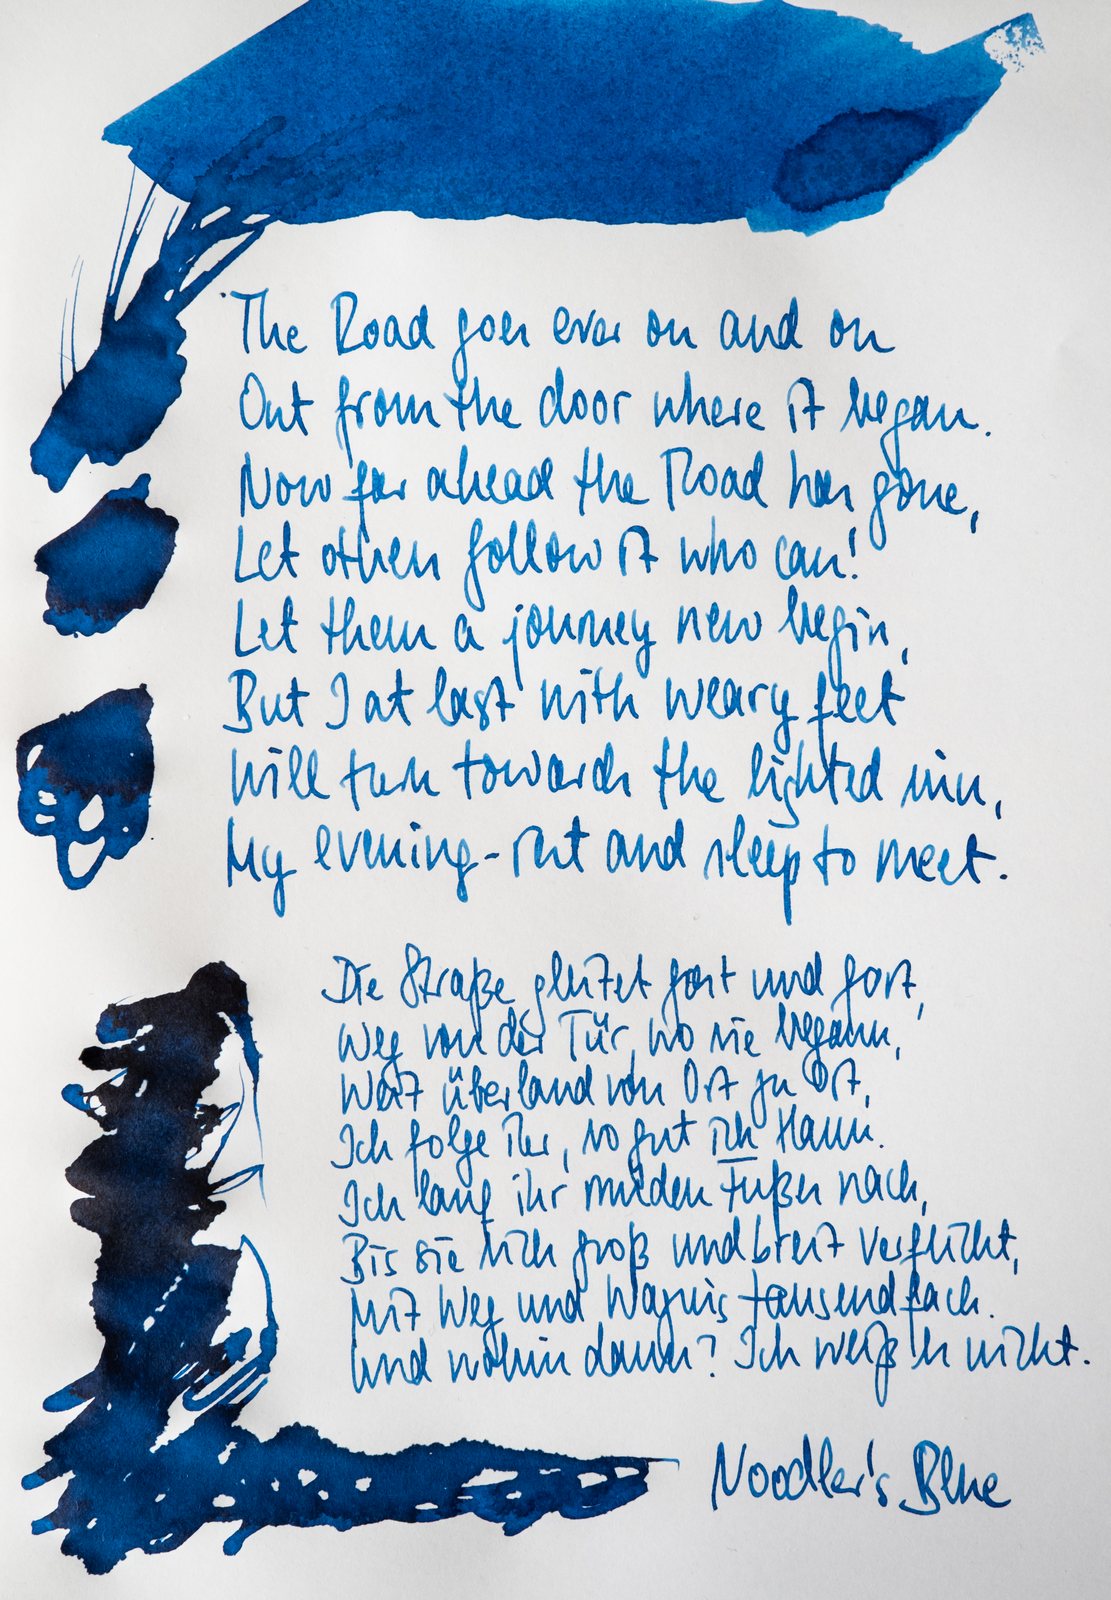 The Road goes ever on and on
Out from the door where it began.
Now far ahead the Road has gone,
Let others follow it who can!
Let them a journey new begin,
But I at last with weary feet
Will turn towards the lighted inn,
My evening-rest and sleep to meet.
Die Straße gleitet fort und fort,
Weg von der Tür, wo sie begann,
Weit überland von Ort zu Ort,
Ich folge ihr, so gut ich kann.
Ich lauf ihr müden Fußes nach,
Bis sie sich groß und breit verflicht,
Mit Weg und Wagnis tausendfach.
Und wohin dann? Ich weiß es nicht.
Noodler's Blue